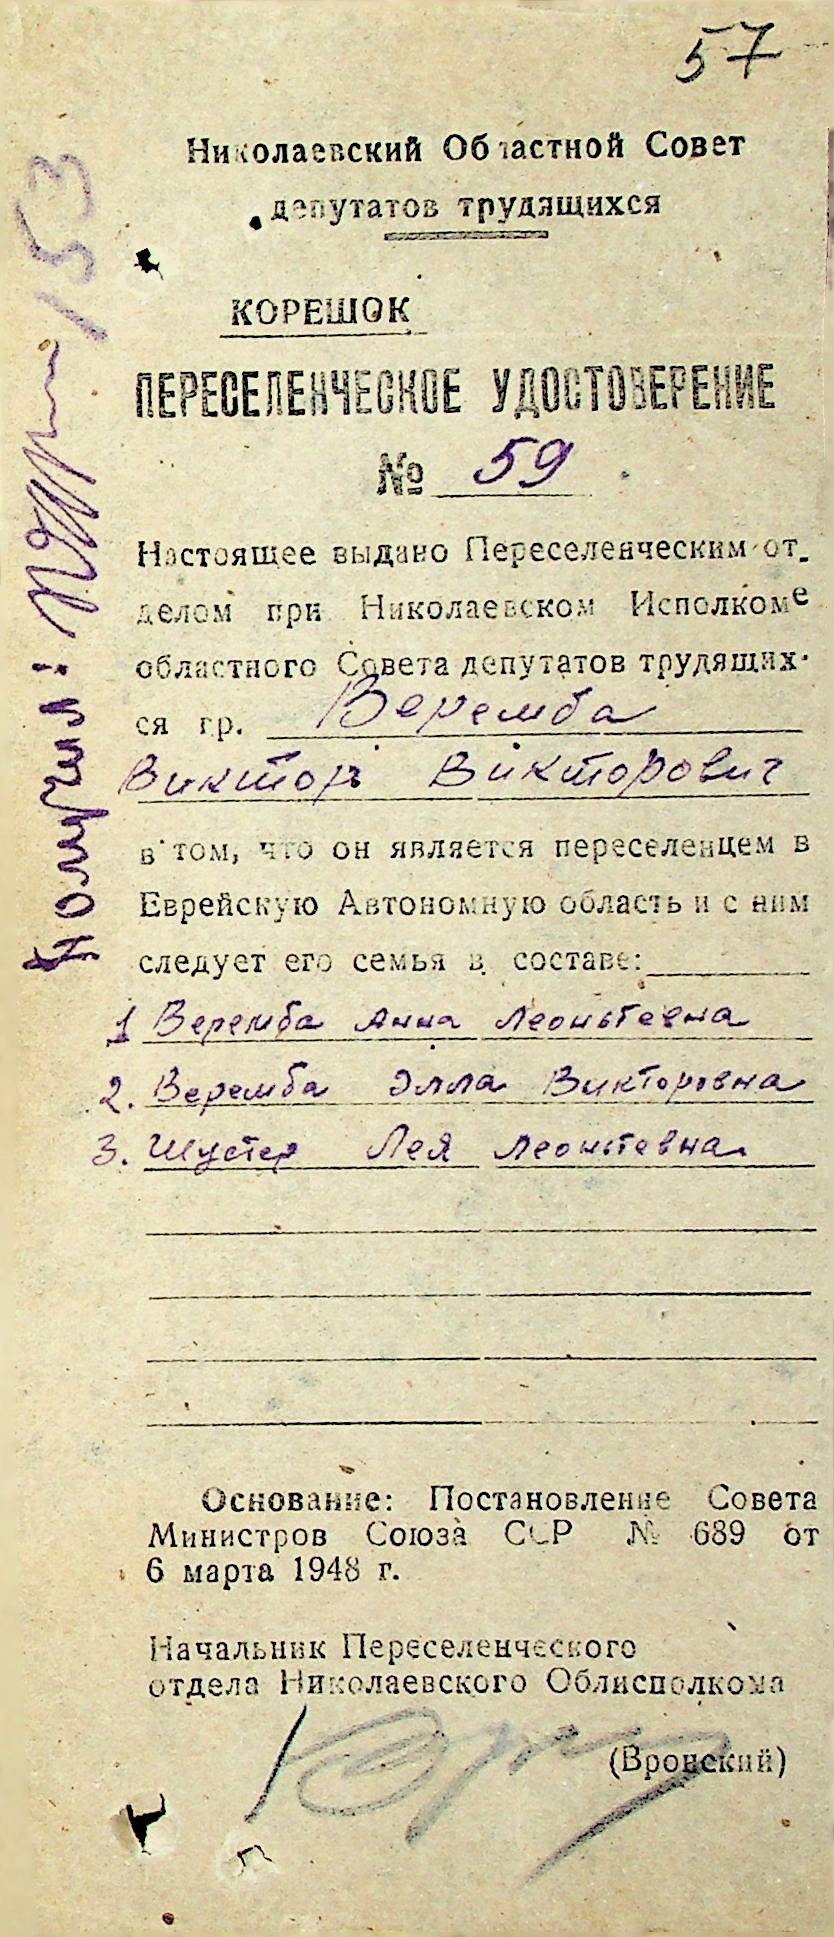 57
Николаевский Областной Совет
депутатов трудящихся
КОРЕШОК
ПЕРЕСЕЛЕНЧЕСКОЕ УДОСТОВЕРЕНИЕ
№ 59
Настоящее выдано Переселенческим от-
делом при Николаевском Исполкоме
областного Совета депутатов трудящих-
ся гр. Веремба
Виктор Викторович
в том, что он является переселенцем в
Еврейскую Автономную область и с ним
следует его семья в составе:
1 Веремба Анна Леонтевна
2. Веремба Элла Викторовна
3. Шустер Лея Леонтевна
Основание: Постановление Совета
Министров Союза ССР № 689 от
6 марта 1948 г.
Начальник Переселенческого
отдела Николаевского Облисполкома
(Вронский)
Получил:
153